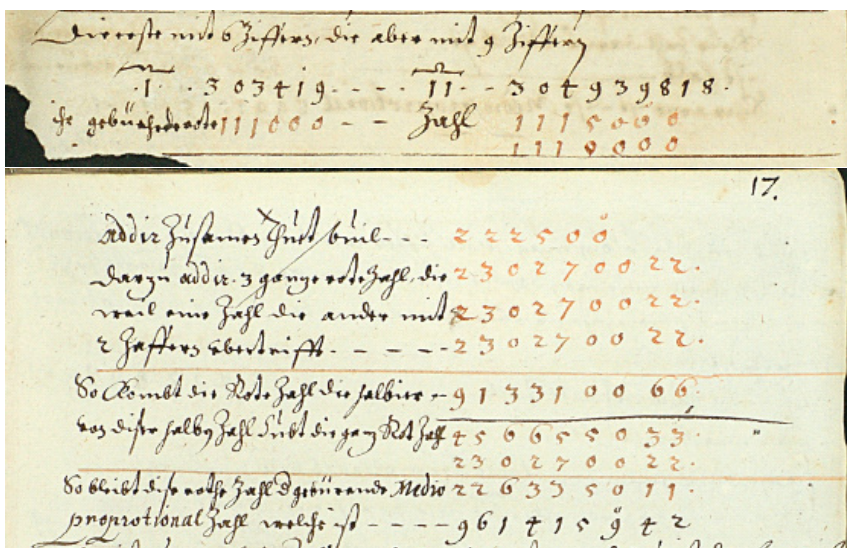 Die erste mit 6 Ziffern, die aber mit 9 Ziffern
.1. . 303419 - - - - 11 - - 304939818.
rote 111000 - - Zahl 1115000
1110000
17.
addir Zusamen thuet - - - 222500
Darzu addir 3 gantze rote Zahl, die 230270022.
weil eine Zahl die ander mit 230270022.
2 Ziffern ubertrifft - - - - - 230270022.
So kombt die Rote Zahl die halbier - 913310066
von diser halben Zahl die gantz Rot Zahl 456655033
230270022.
So bleibt dise rothe Zahl d gebürende Medio 226335011
proprotional Zahl welche ist - - - - 961415942